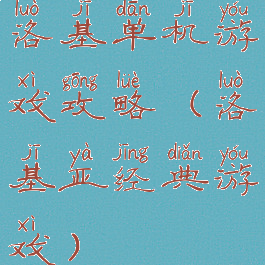 luò jī dān jī yóu
洛基单机游
xì gōng lüè luò
戏攻略(洛
jī yà jīng diǎn yóu
基亚经典游
xì
戏)